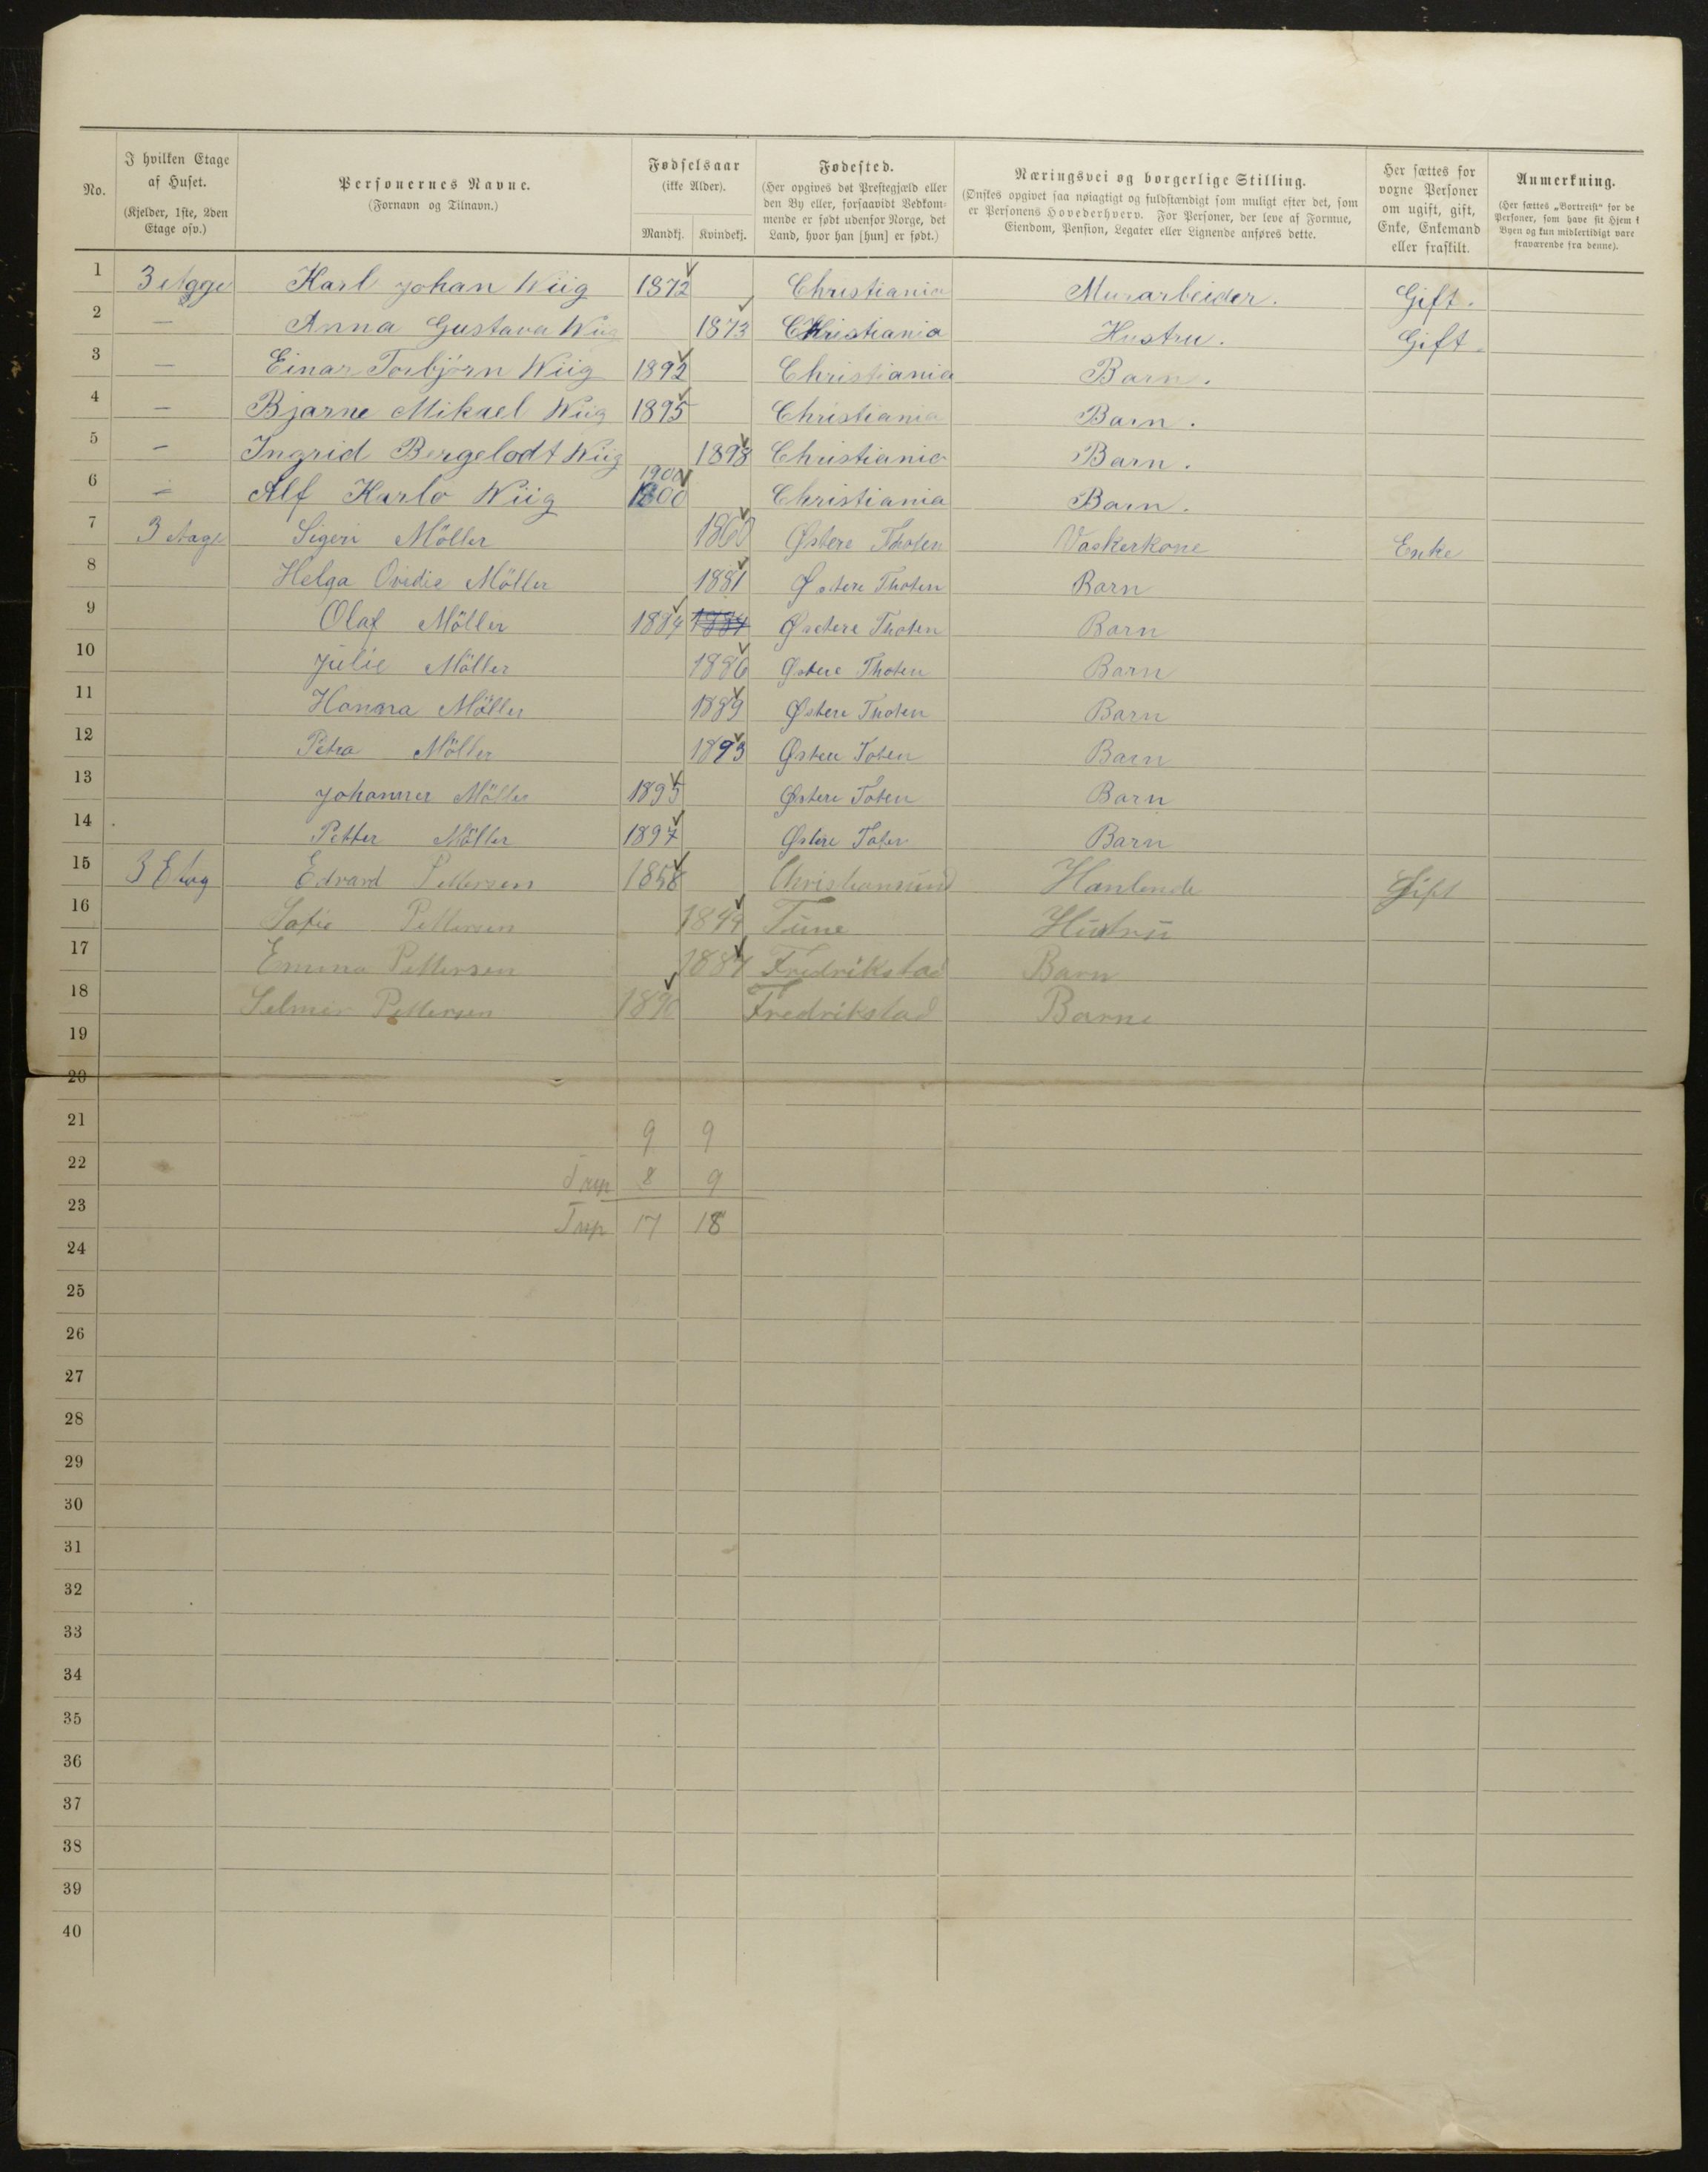 No.
I hvilken Etage af Huset. (Kjelder, 1ste, 2den Etage osv.)
Personernes Navne. (Fornavn og Tilnavn.)
Fødselsaar (ikke Alder). Mandkj. Kvindekj.
Fødested. (Her opgives det Prestegjæld eller den By eller, forsaavidt Vedkommende er født udenfor Norge, det Land, hvor han [hun] er født.)
Næringsvei og borgerlige Stilling. (Ønskes opgivet saa nøiagtigt og fuldstændigt som muligt efter det, som er Personens Hovederhverv. For Personer, der leve af Formue, Eiendom, Pension, Legater eller Lignende anføres dette.
Her sættes for voxne Personer om ugift, gift, Enke, Enkemand eller fraskilt.
Anmerkning. (Her sættes „Bortreist" for de Personer, som have sit Hjem i Byen og kun midlertidigt vare fraværende fra denne).
1 3 etagge Karl Johan Wiig 1872 Christiania Murarbeider. Gift.
2 — Anna Gustava Wiig 1873 Christiania Hustru. Gift.
3 — Einar Torbjörn Wiig 1892 Christiania Barn.
4 — Bjarne Mikael Wiig 1895 Christiania Barn.
5 — Ingrid Bergelodt Wiig 1898 Christiania Barn.
6 — Alf Karlo Wiig 1900 Christiania Barn.
7 3 etage Sigeri Möller 1860 Østere Thoten Vaskerkone Enke
8 Helga Ovidie Möller 1881 Østere Thoten Barn
9 Olaf Möller 1884 1884 Østere Thoten Barn
10 Julie Möller 1886 Østere Thoten Barn
11 Hanna Möller 1889 Østere Thoten Barn
12 Petra Möller 1893 Østere Toten Barn
13 Johannes Möller 1895 Østere Toten Barn
14 Petter Möller 1897 Østere Toten Barn
15 3 Etag Edvard Pettersen 1858 Christiansund Gift
16 Sofie Pettersen 1849 Tune Hustru
17 Emma Pettersen 1884 Fredrikstad Barn
18 Selmer Pettersen 1890 Fredrikstad Barn
19
20
21 9 9
22 8 9
23 17 18
24
25
26
27
28
29
30
31
32
33
34
35
36
37
38
39
40